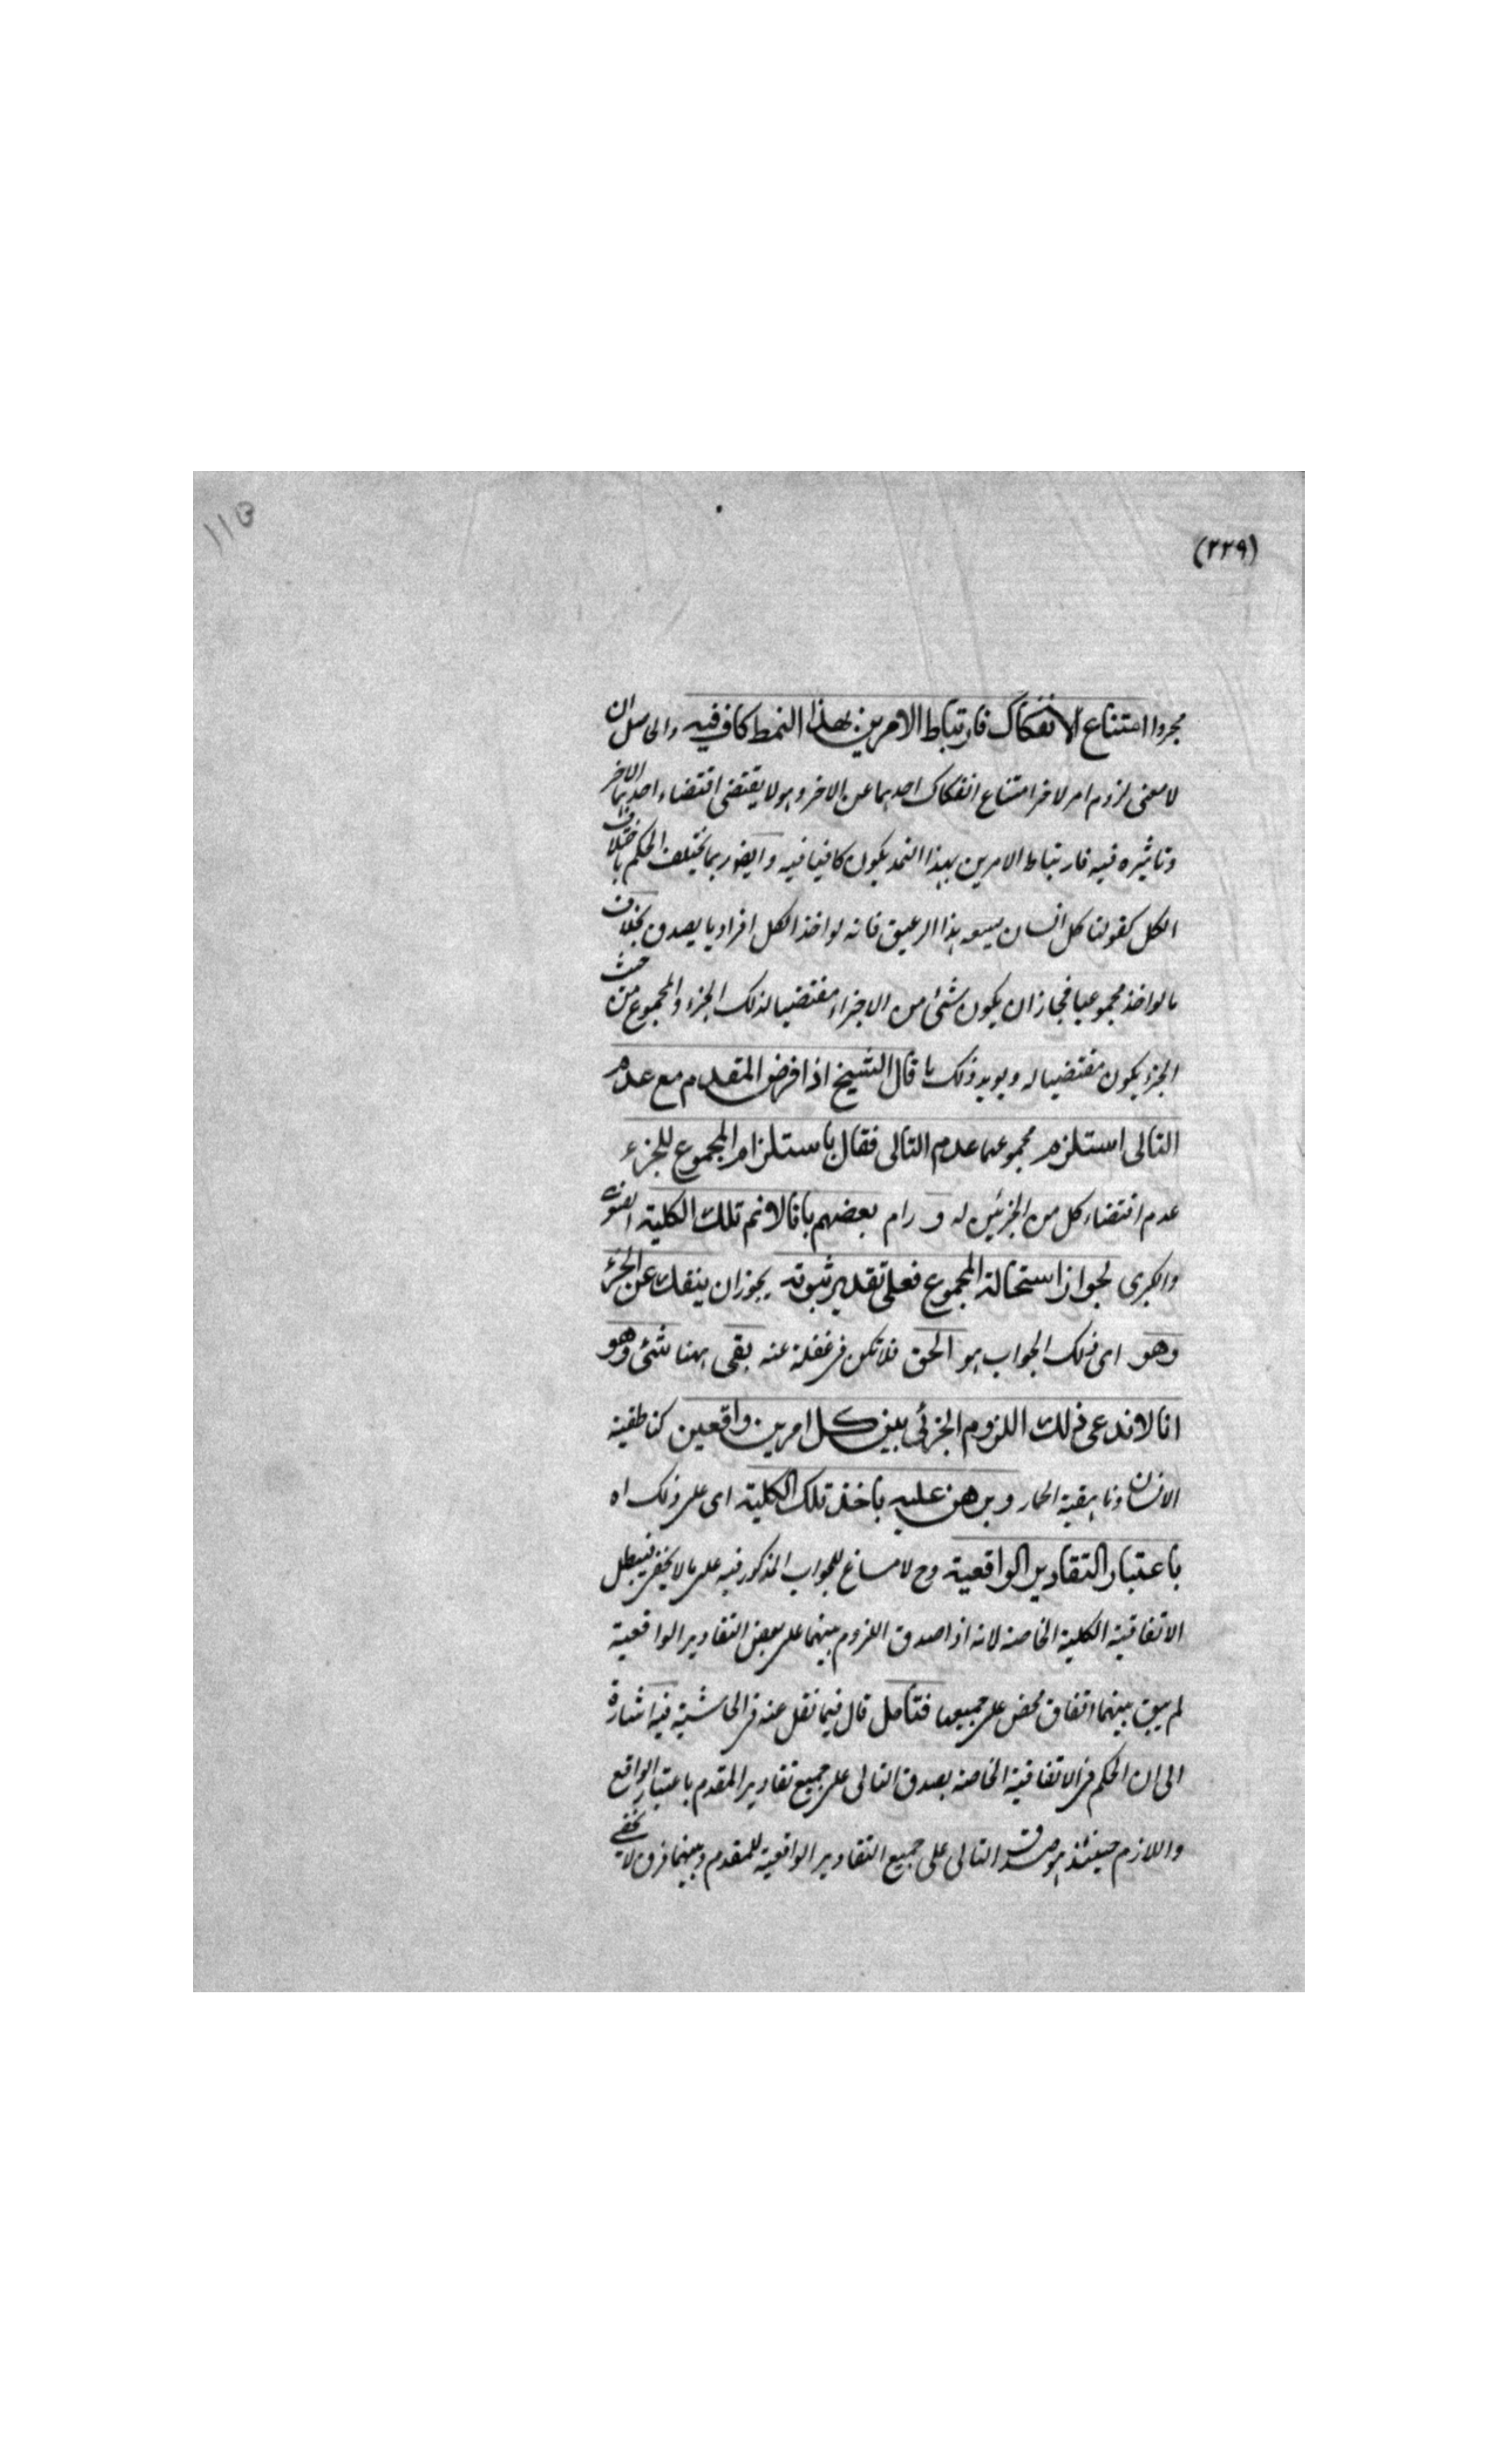 (٢٢٩)
مجردا امتناع الانفكاك فارتباط الامرين بهذا النمط كاف فيه والحاصل ان
لا معنى لزوم امر لاخر امتناع انفكاك احدهما عن الاخر وهو لا يقتضى اقتضاء احدهما الاخر
وتاثيره فيه فارتباط الامرين بهذا النمط يكون كافيا فيه وايضا ربما يختلف الحكم باختلاف
الكل كقولنا كل انسان يسعه هذا الرغيق فانه لو اخذ الكل افراديا يصدق بخلاف
ما لو اخذ مجموعيا فجاز ان يكون شئ من الاجزاء مقتضيا لذلك الجزء والمجموع من حيث
الجزء يكون مقتضيا له ويويد ذلك ما قال الشيخ اذا فرض المقدم مع عدم
التالى استلزم مجموعهما عدم التالى فقال باستلزام المجموع للجزء
عدم اقتضاء كل من الجزئين له و رام بعضهم بانا لا نم تلك الكلية
والكبرى لجواز استحالة المجموع فعلى تقدير ثبوته يجوز ان ينفك عن الجزء
وهو اى ذلك الجواب هو الحق فلا تكن فى غفلة عنه بقى ههنا شئ وهو
انا لا ندعى ذلك اللزوم الجزئى بين كل امرين واقعين كناطقية
الانسان وناهقية الحمار وبرهن عليه باخذ تلك الكلية اى على ذلك اه
باعتبار التقادير الواقعية وح لا مساغ للجواب المذكور فيه على ما لا يخفى فيبطل
الاتفاقية الكلية الخاصة لانه اذا صدق اللزوم بينهما على بعض التقادير الواقعية
لم يبق بينهما اتفاق محض على جميعها فتامل قال فيما نقل عنه فى الحاشية فيه اشارة
الى ان الحكم فى الاتفاقية الخاصة بصدق التالى على جميع تقادير المقدم باعتبار الواقع
واللازم حينئذ هو صدق التالى على جميع التقادير الواقعية للمقدم وبينهما فرق لا يخفى